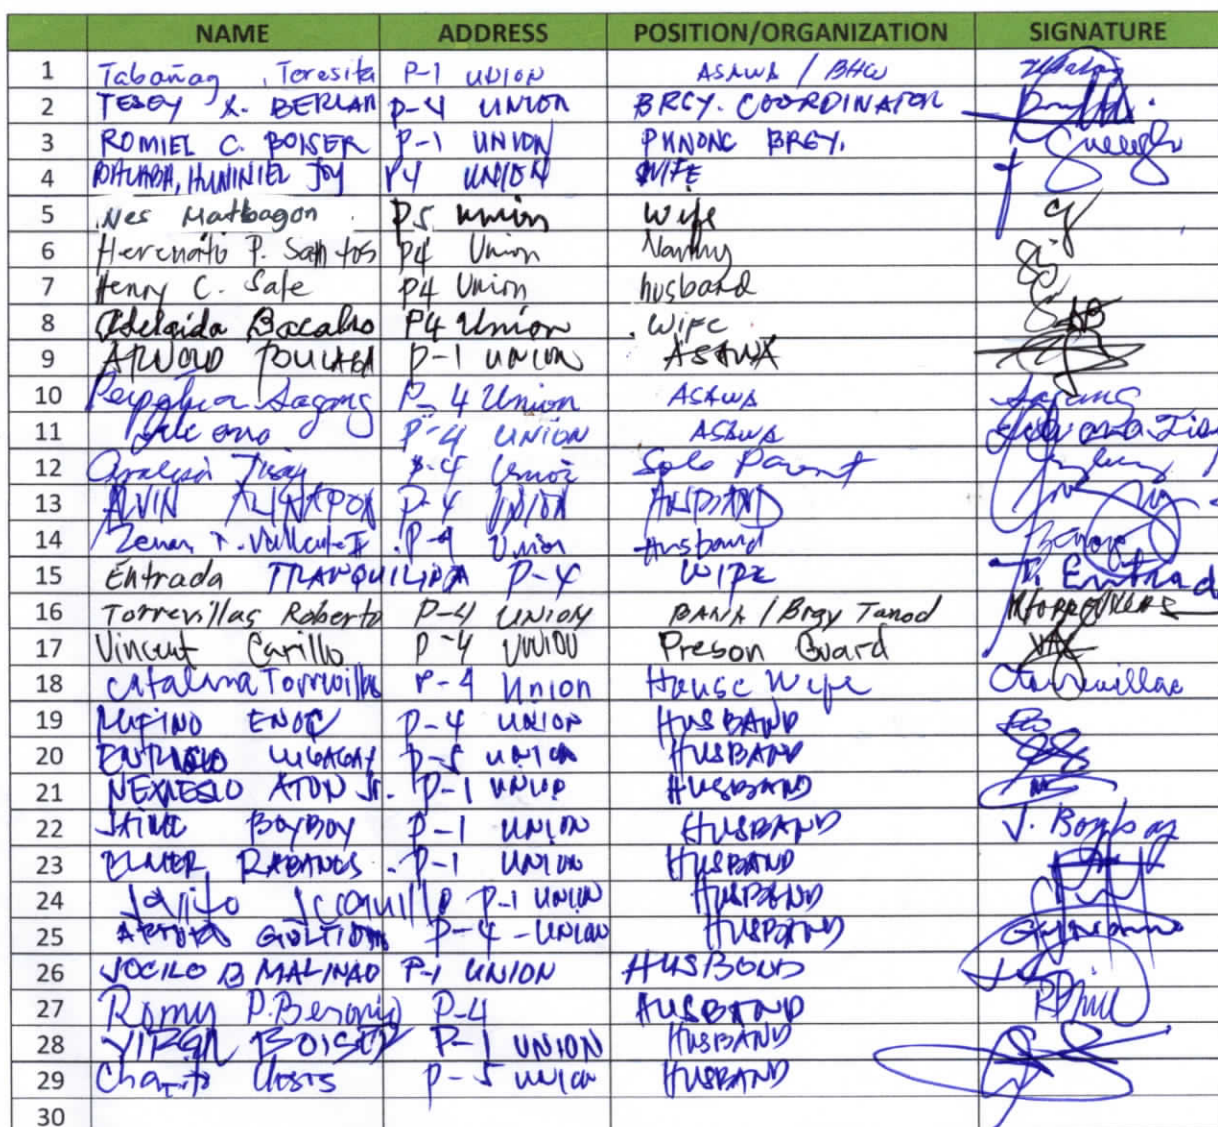 NAME ADDRESS POSITION/ORGANIZATION SIGNATURE
1 Tabañag, Teresita P-1 UNION ASAWA / BHW
2 TESSY A. BERLAN P-4 UNION BRGY. COORDINATOR
3 ROMIEL C. BOISER P-1 UNION PUNONG BRGY.
4 JOY P4 UNION WIFE
5 Nes Matbagon P5 Union Wife
6 P. Santos P4 Union Nanny
7 Henry C. Sale P4 Union husband
8 Adelaida Bacalso P4 Union Wife
9 ARNOLD P-1 UNION ASAWA
10 Perpetua Sagang P-4 Union ASAWA Sagang
11 P-4 UNION ASAWA
12 Tisoy P-4 Union Solo Parent
13 ALVIN P-4 UNION HUSBAND
14 Zenon P-4 Union Husband
15 Entrada TRANQUILINA P-4 WIFE T. Entrada
16 Torrevillas Roberto P-4 UNION BANA / Brgy Tanod
17 Vincent Carillo P-4 UNION Preson Guard
18 Catalina Torrevillas P-4 Union House Wife Ctorrevillas
19 RUFINO ENOC P-4 UNION HUSBAND
20 P-5 UNION HUSBAND
21 ATON Jr. P-1 UNION HUSBAND
22 JAIME BOYBOY P-1 UNION HUSBAND J. Boyboy
23 ELMER RABANOS P-1 UNION HUSBAND
24 P-1 UNION HUSBAND
25 ARTURO P-4 - UNION HUSBAND
26 JOCILO B MALINAO P-1 UNION HUSBOND
27 Romy P. Beronio P-4 HUSBAND
28 VIRGIL BOISER P-1 UNION HUSBAND
29 Charito P-5 UNION HUSBAND
30